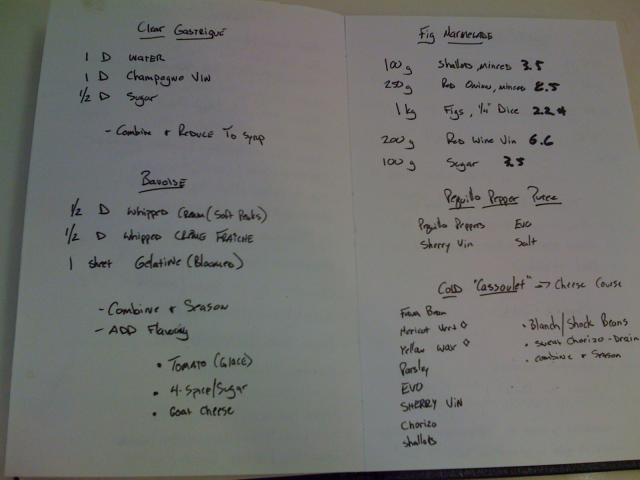 Clear Gastrique
1 D water
1 D Champagne Vin
1/2 D Sugar
- Combine + Reduce To Syrup
Bavoise
1/2 D whipped Cream (Soft Peaks)
1/2 D whipped Crème Fraîche
1 sheet Gelatine (Bloomed)
- Combine + Season
- ADD Flavoring
• Tomato (Glace)
• 4-Spice/Sugar
• Goat Cheese
Fig Marmelade
100g shallots, minced 3.5
250g Red Onion, minced 8.5
1 kg Figs, 1/4" Dice 2.2#
200g Red Wine Vin 6.6
100g Sugar 3.5
Pequillo Pepper Puree
Pequillo Peppers EVO
Sherry Vin Salt
Cold "Cassoulet" → Cheese Course
Fava Bean
Hericot Vert ◊ • Blanch/Shock Beans
Yellow Wax ◊ • sweat Chorizo - Drain
Parsley • combine + Season
EVO
SHERRY VIN
Chorizo
shallots